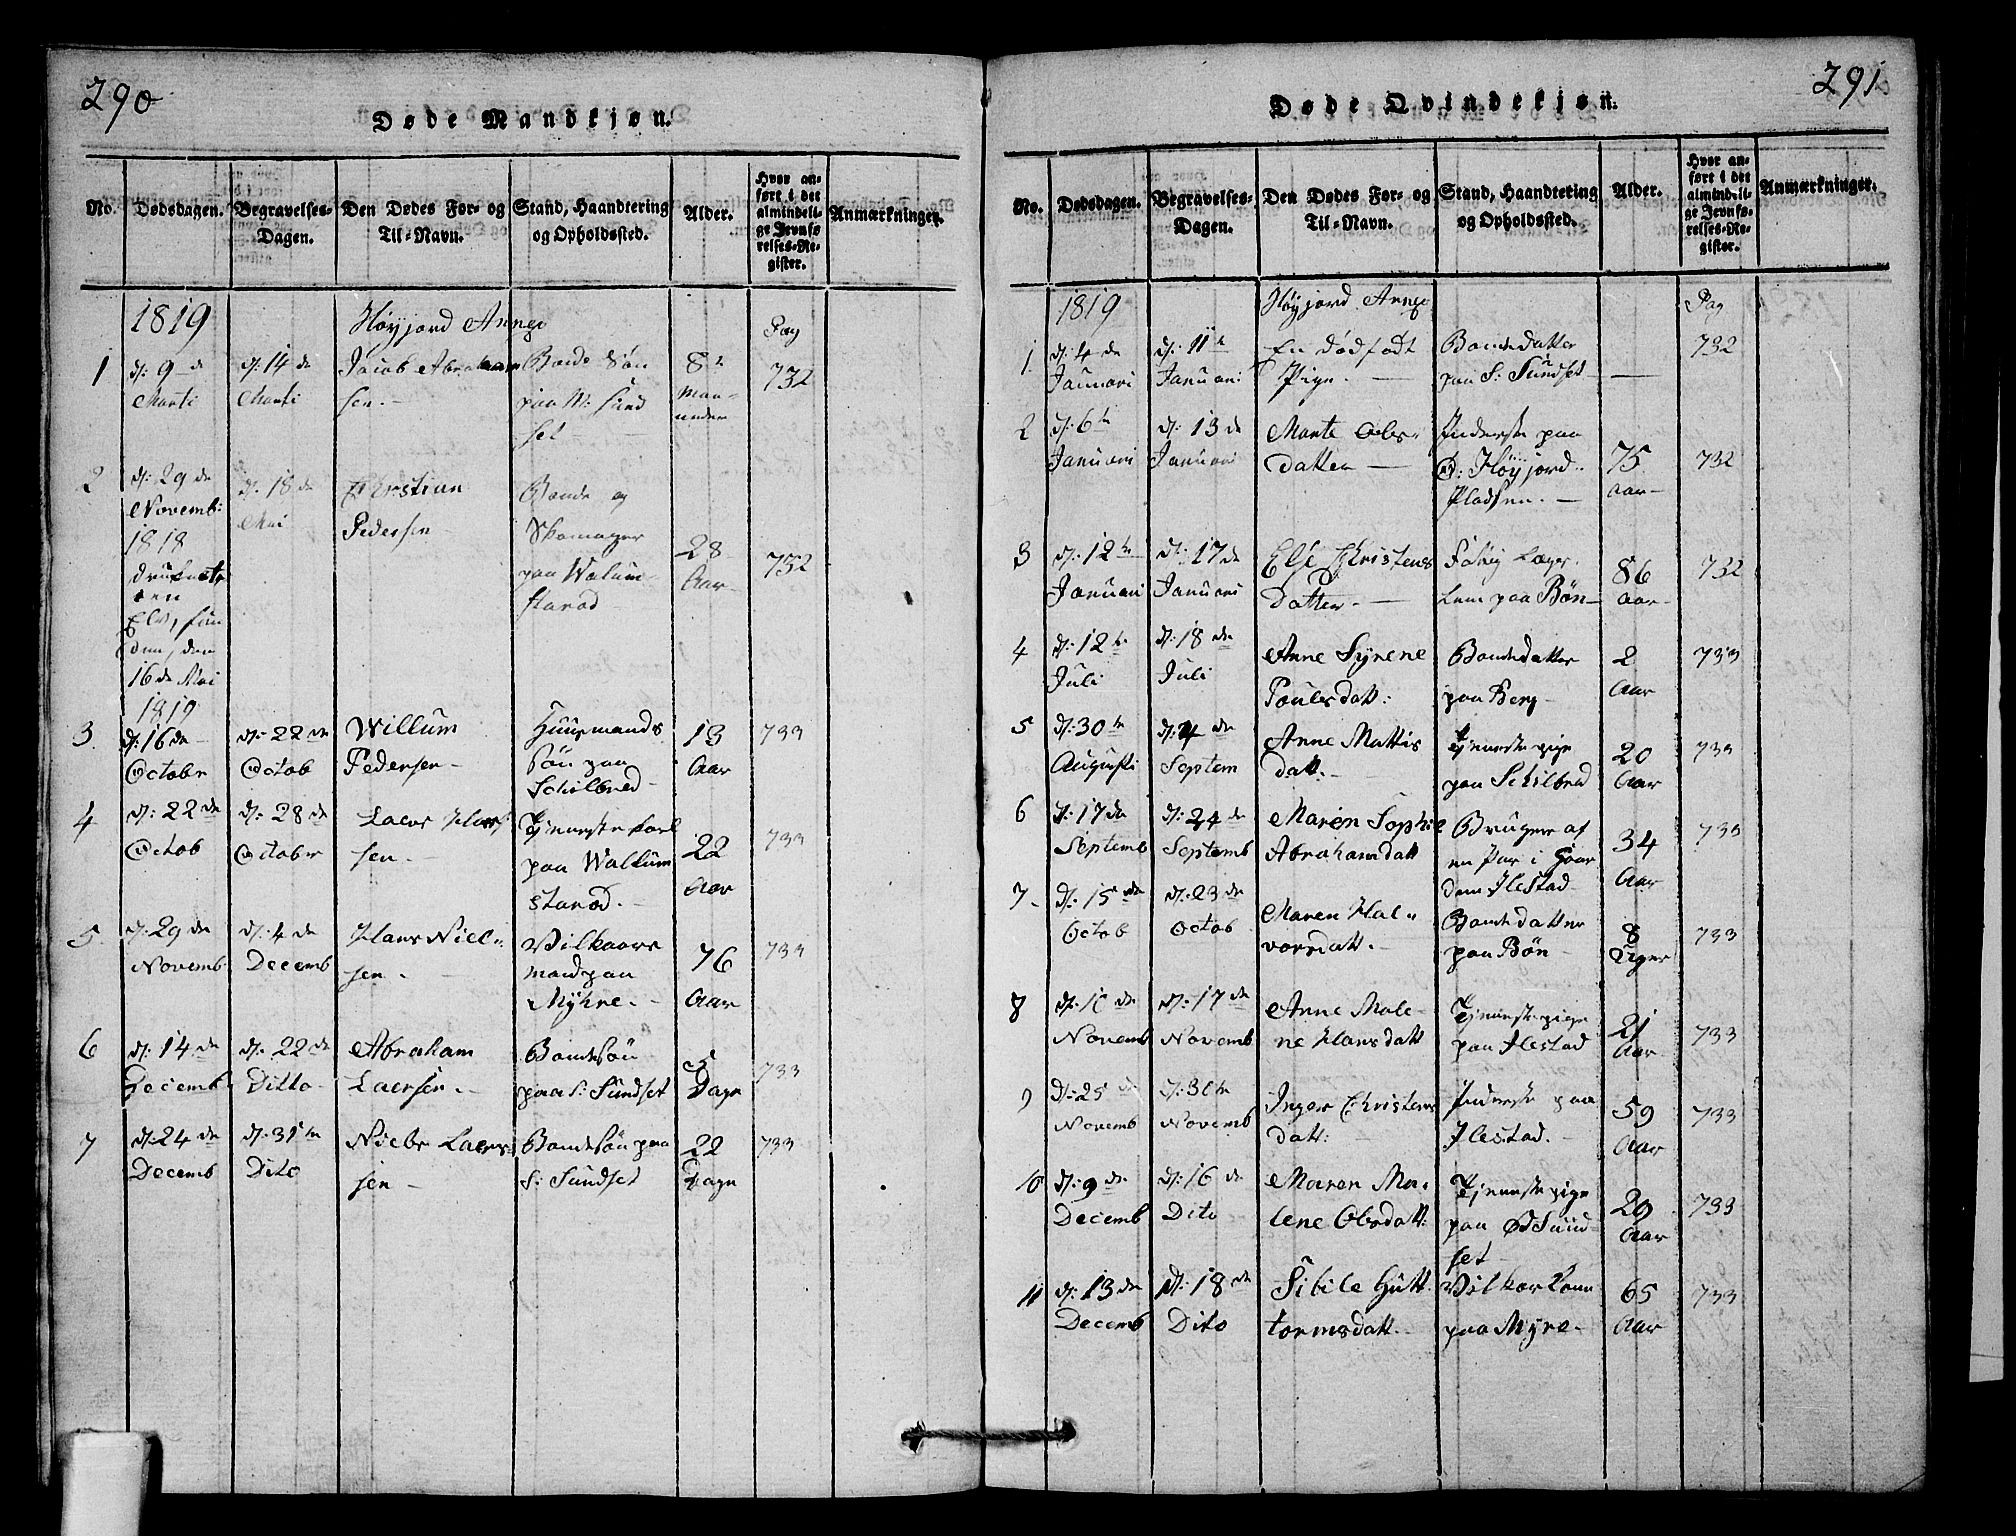 290
Døde Mandkjøn.
No.
Dødsdagen.
Begravelses-
Dagen.
Den Dødes For- og
Til-Navn.
Stand, Haandtering
og Opholdssted.
Alder.
Hvor an-
ført i det
almindeli-
ge Jevnfø-
relses-Re-
gister.
Anmærkninger.
1819
Høyjord Annex
Pag
1
d: 9 de
Marti
d: 14 de
Marti
Jacob Abraham
sen.-
Bonde Søn
paa N: Sund
set-
8te
Maa-
neder
732
2
d: 29 de
Novemb:
1818
druknet
Elv, fun
den den
16 de Mai
1819
d: 18 de
Mai
Christian
Pedersen-
Bonde og
Skomager
paa Walum-
starød
28
Aar-
732
3.
d: 16 de
October
d: 22 de
Octob
Willum
Pedersen-
Huusmands
søn paa
Schilbred-
13
Aar
733
4
d: 22 de
Octob
d: 28 de
October
Laers Hans
sen.-
Tjenestekarl
paa Wallum
starød.-
22
Aar
733
5.
d: 29 de
Novemb
d: 4 de
Decemb
Hans Niel-
sen.-
Vilkaars
mand paa
Myhre.-
76
Aar
733
6
d: 14 de
Decemb
d: 22 de
Ditto-
Abraham
Laersen.-
Bondesøn
paa S: Sundset
5
Dage
733
7
d: 24 de
Decemb
d: 31 te
Dito
Niels Laers-
sen-
Bondesøn paa
S: Sundset
22
Dage
733
291
Døde Qvindekjøn.
No.
Dødsdagen.
Begravelses-
Dagen.
Den Dødes For- og
Til-Navn.
Stand, Haandtering
og Opholdssted.
Alder.
Hvor an-
ført i det
almindeli-
ge Jevnfø-
relses-Re-
gister.
Anmærkninger.
1819
Høyjord Annex
Pag
1.
d: 4 de
Januari
d: 11te
Januari
En dødfødt
Pige.-
Bondedatter
paa S: Sundset
-
732
2
d: 6te
Januari
d: 13 de
Januari
Marte Ols-
datter-
Inderste paa
Ø: Høyjord-
Pladsen.-
75
Aar-
732
3
d: 12te
Januari
d: 17 de
Januari
Else Christens
Datter.-
Fattig Læges
Lem paa Bøn-
86
Aar-
732
4
d: 12te
Juli
d: 18 de
Juli
Anne Syrene
Poulsdatt:
Bondedatter
paa Berg-
2
Aar
733
5
d: 30te
Augusti
d: 4 de
Septem
Anne Mattis
datt.-
Tjenestepige
paa Schilbred
20
Aar
733
6
d: 17 de
Septemb
d: 24 de
Septemb
Maren Sophie
Abrahamdatt
Bruger af
en Par i Gaar
den Ilestad-
34
Aar
733
7-
d: 15 de
Octob
d: 23 de
Octob
Maren Hal-
vorsdatt.-
Bondedatter
paa Bøn-
8
Uger
733
8
d: 10 de
Novemb
d: 17 de
Novemb
Anne Male-
ne Hansdatt
Tjenestepige
paa Ilestad
21
Aar
733
9
d: 25 de
Novemb
d: 30te
Novemb
Inger Christens
datt:
Inderste paa
Ilestad.-
59
Aar
733
10
d: 9 de
Decemb
d: 16 de
Dito
Maren Ma-
lene Olsdatt:
Tjenestepige
paa Ø Sund-
set-
29
Aar
733
11
d: 13 de
Decemb
d: 18 de
Dito
Sibile Gutt
tormsdatt.-
Vilkor Kone
paa Myre-
65
Aar
733